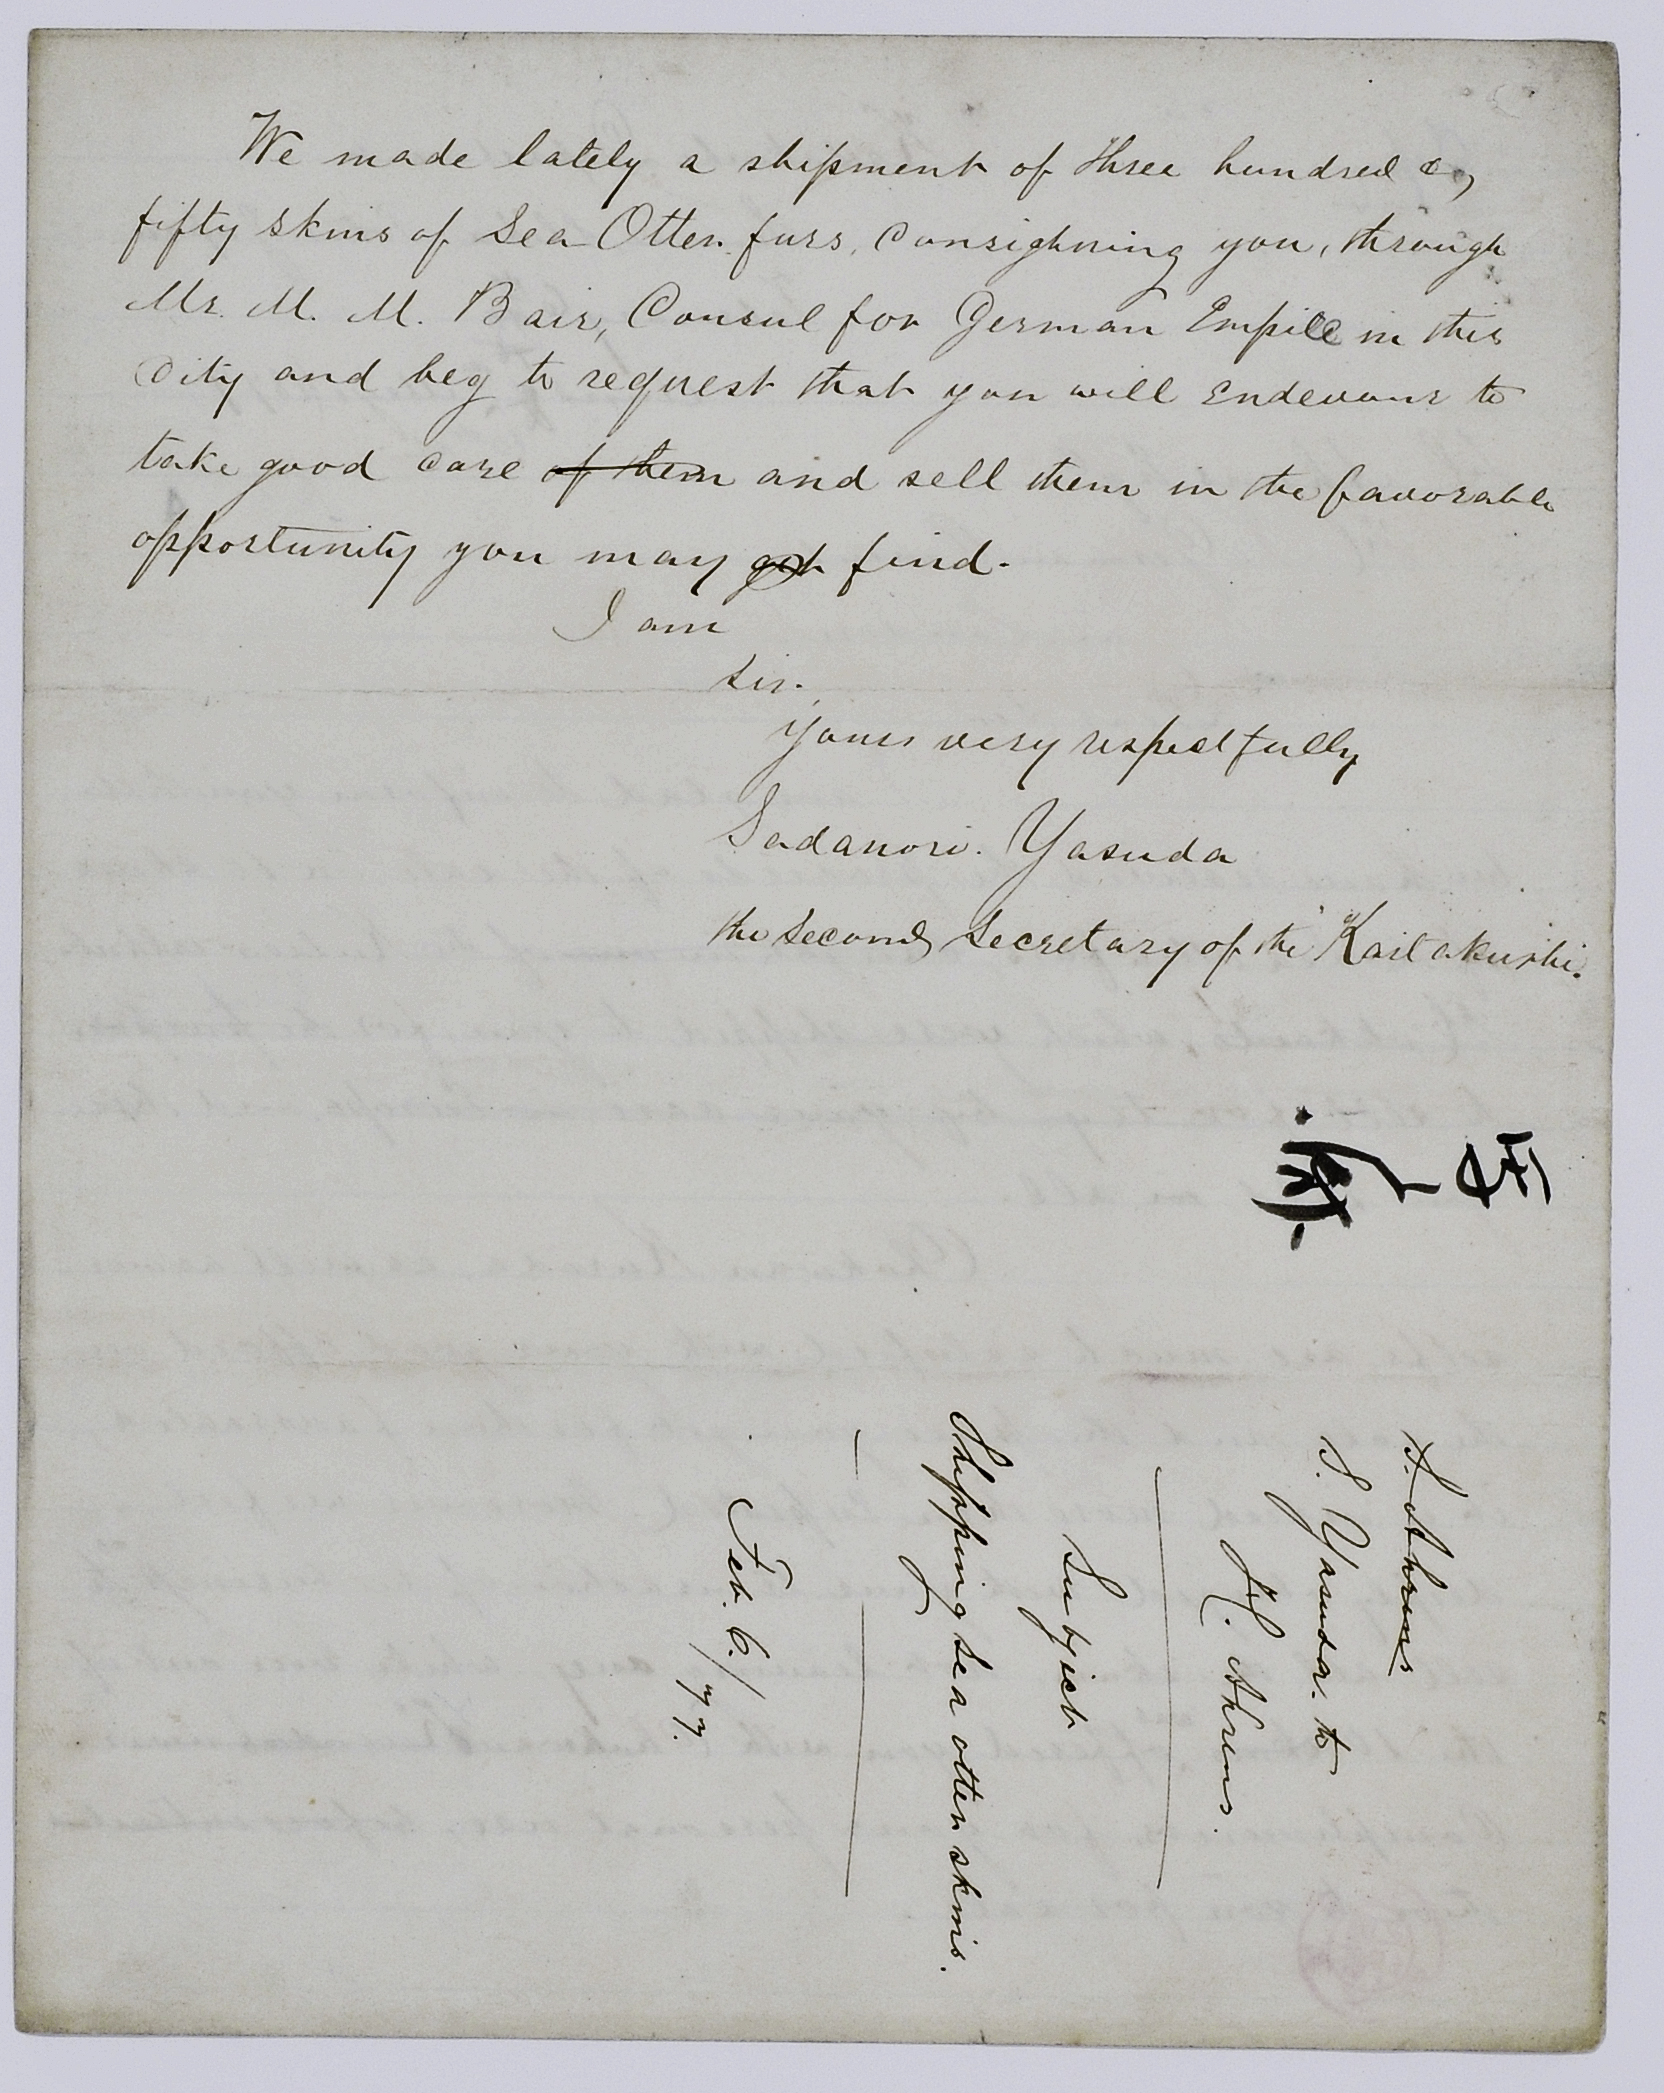 We made lately a shipment of three hundred &
fifty skins of Sea Otter furs, Consighning you, through
Mr. M. M. Bair, Consul for German Empire in this
City and beg to request that you will Endevour to
take good care of them and sell them in the favorable
opportunity you may got find.
I am
Sir.
Yours very respectfully
Sadanori. Yasuda
the Second Secretary of the Kaitakushi.
S. Ahrens
S. Yasuda. to
H. Ahrens.
Subject
Shipping Sea otter skins.
Feb. 6./77.